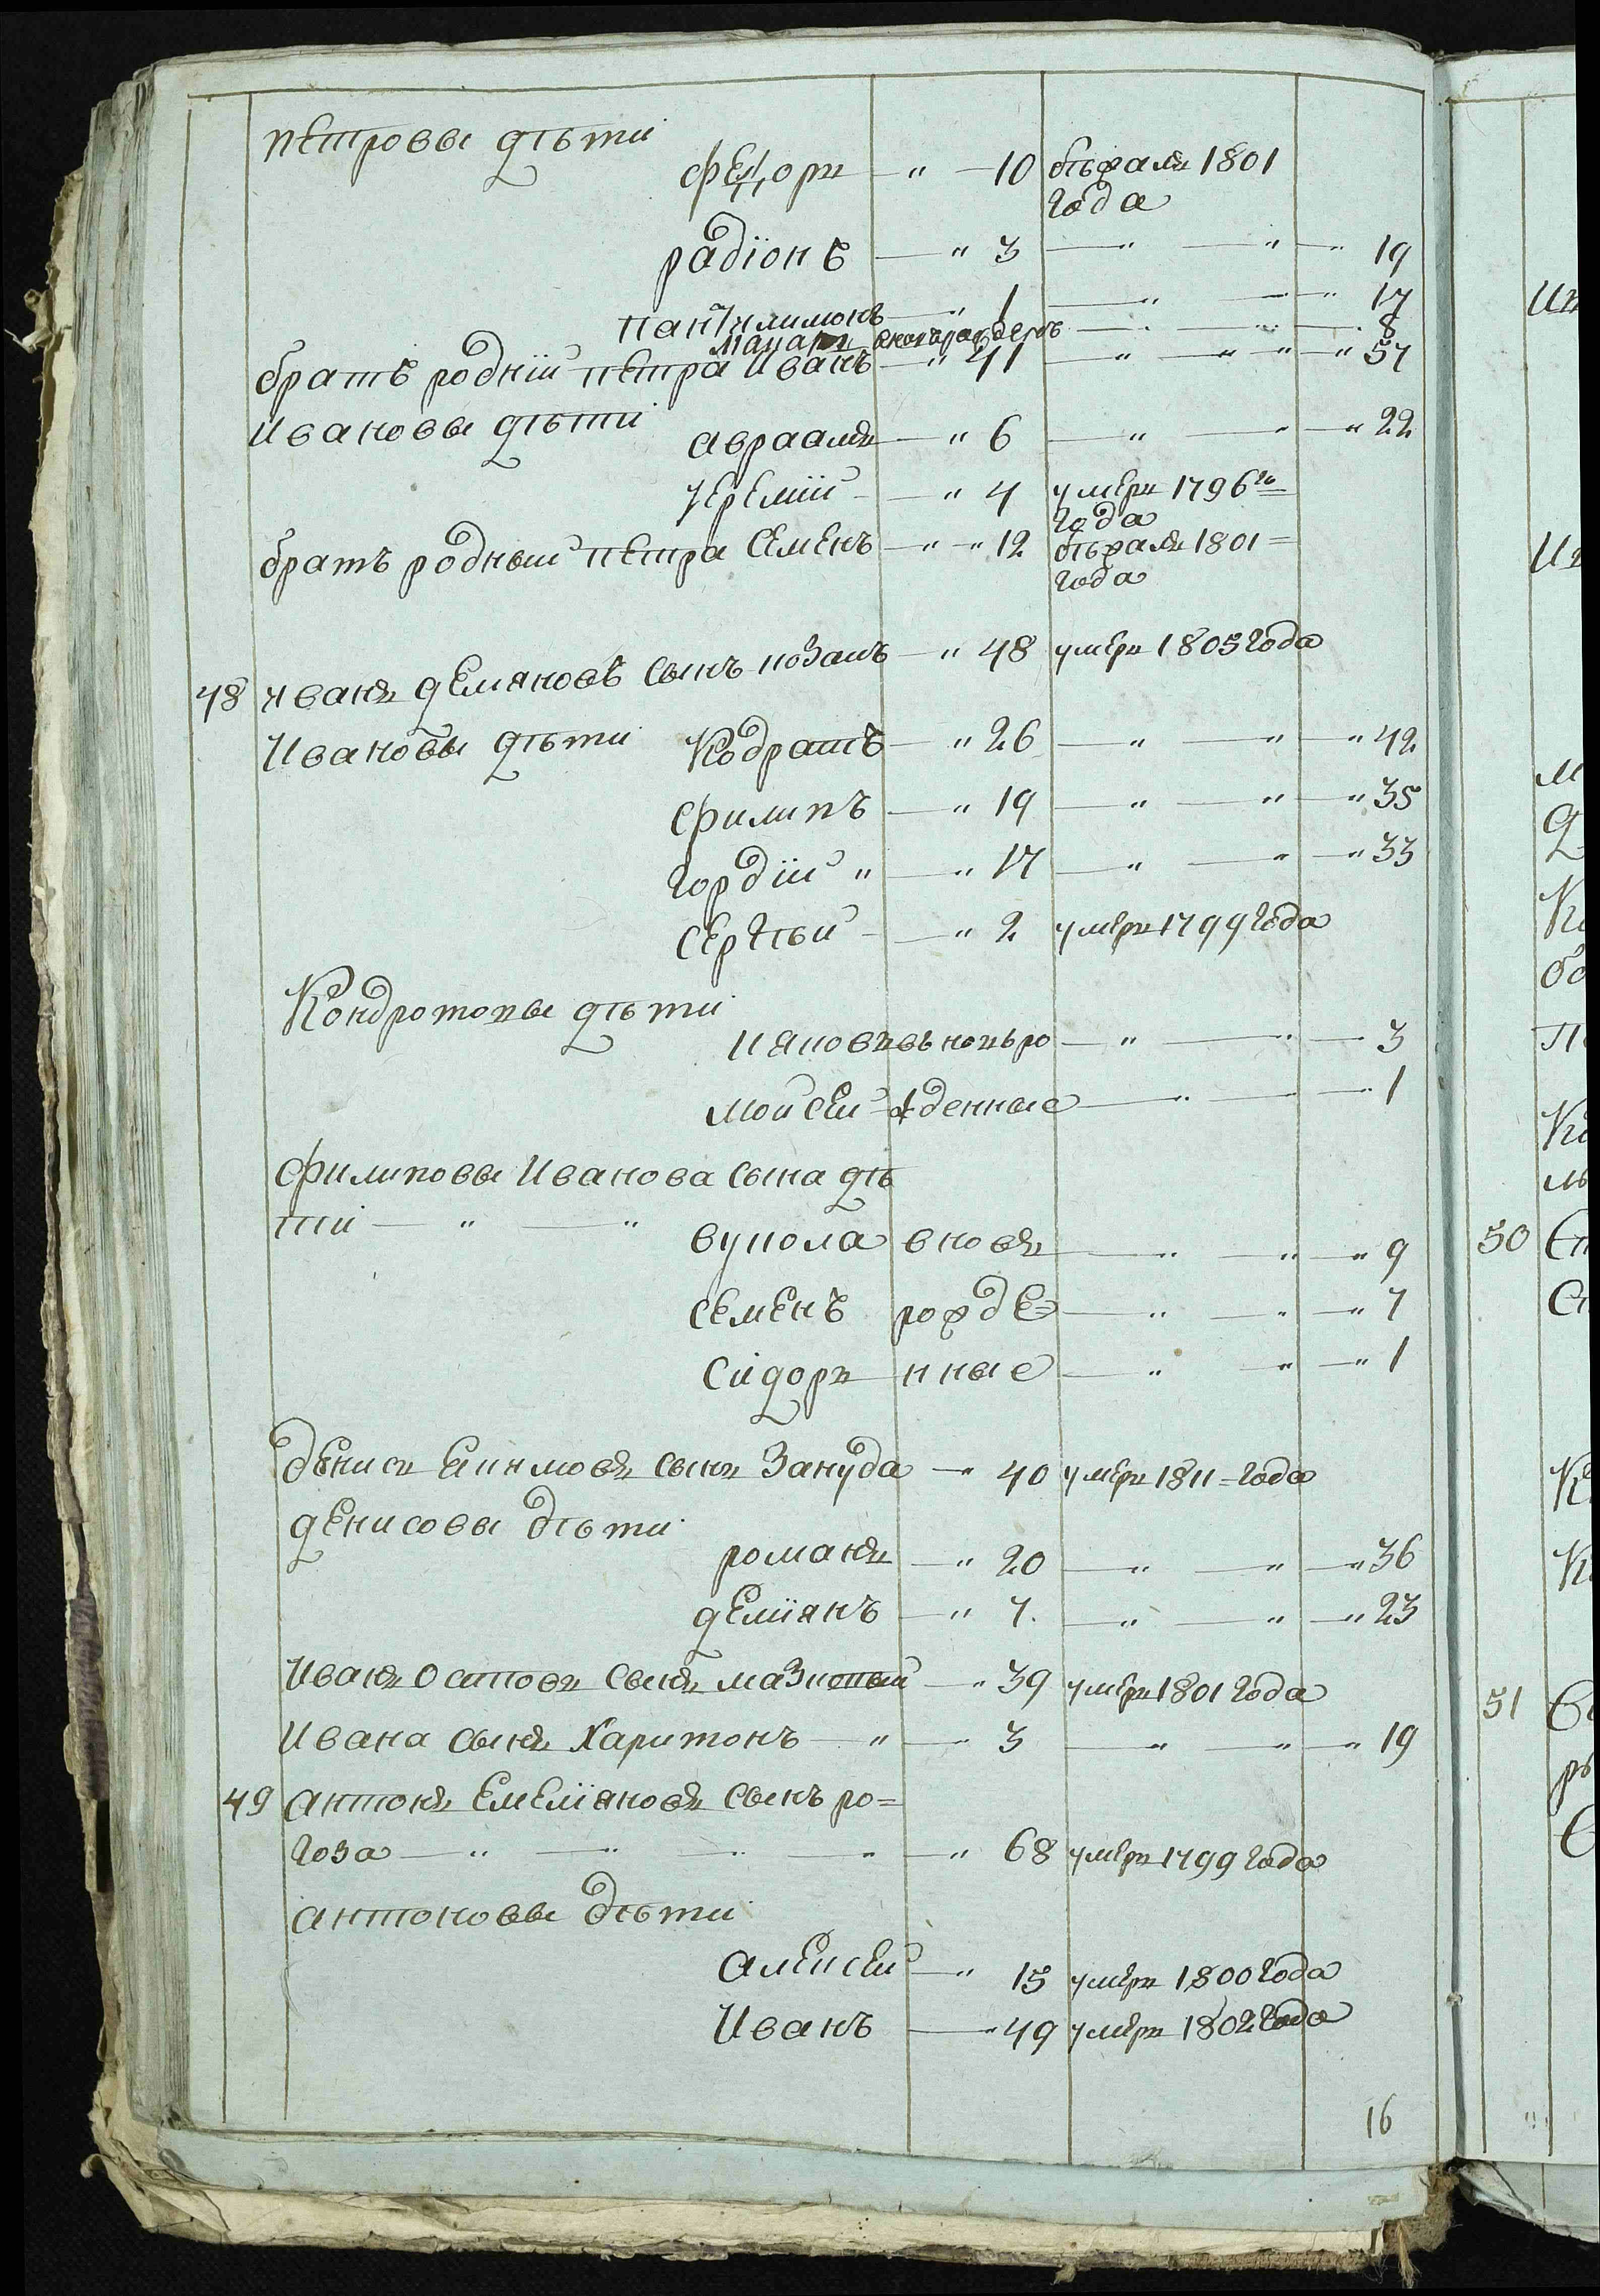 петровы дѣти
Федоръ — " — 10 бѣжалъ 1801
года
радіонъ — " 3 — " — " — " 19
пантилимонъ — " 1 — " — " 17
макаръ — " — " — 8
братъ родній петра иванъ — " 41 — " — " " — " 57
ивановы дѣти
авраамъ — " 6 — " — " — " 22
Іеремій — " 4 умеръ 1796го
года
братъ родный петра Семенъ — " — " 12 бѣжалъ 1801 =
года
48 иванъ демяновъ сынъ козакъ — " 48 умеръ 1805 года
Ивановы дѣти Кодратъ — " 26 — " — " — " 42
Филипъ — " 19 — " — " — " 35
Гордій " — " 17 — " — " — " 33
Сергѣй — " 2 умеръ 1799 года
Кондротовы дѣти
Іяковъ вновьро — " — " — 3
Мойсей жденные — " — " 1
Филиповы Иванова сына дѣ
ти — " — "
вукола вновъ — " — " — " 9
Семенъ рожде= — " — " — " 7
Сидоръ нные — " — " — " 1
денисъ сынъ Зануда — " 40 умеръ 1811 = года
денисовы дѣти
романъ — " 20 — " — " — " 36
деміянъ — " 7. — " — " — " 23
Иванъ Остповъ сынъ — " 39 умеръ 1801 года
Ивана сынъ Харитонъ — " — " 3 — " — " — " 19
49 антонъ Емеліяновъ сынъ ро=
гоза — " — " — " — " — " 68 умеръ 1799 года
антоновы дѣти
Алексей — " 15 умеръ 1800 года
Иванъ — " 49 умеръ 1802 года
16
50
51